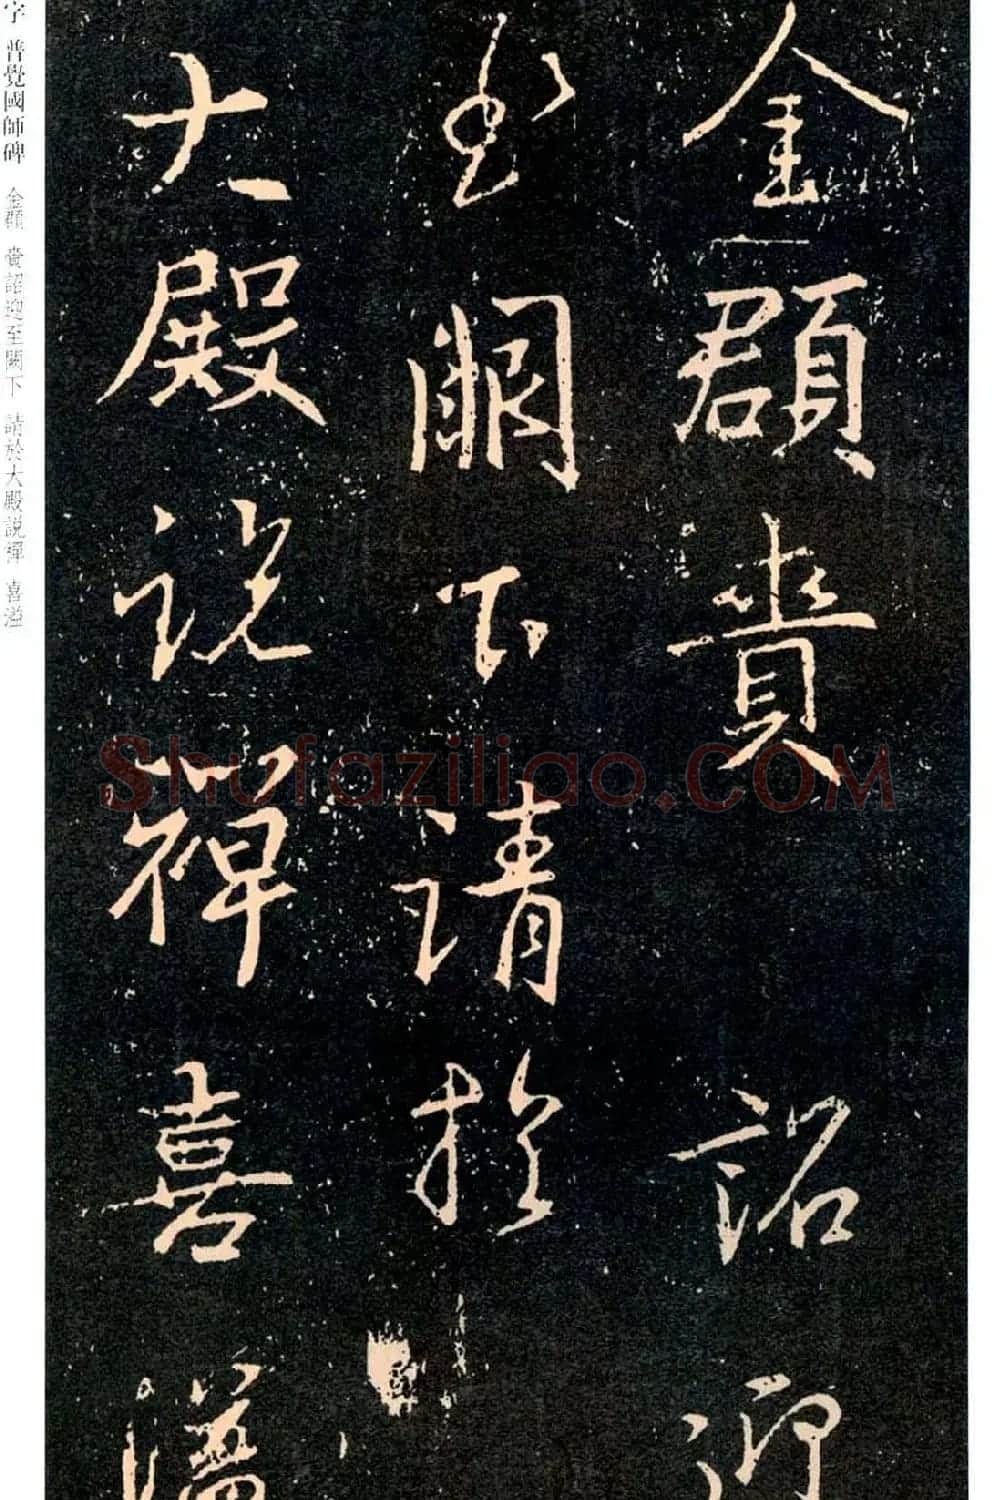 金頵賷詔迎
至闕下請於
大殿説禪喜溢
字 普覺國師碑 金頵 賷詔迎至闕下 請於大殿説禪 喜溢
Shufaziliao.COM